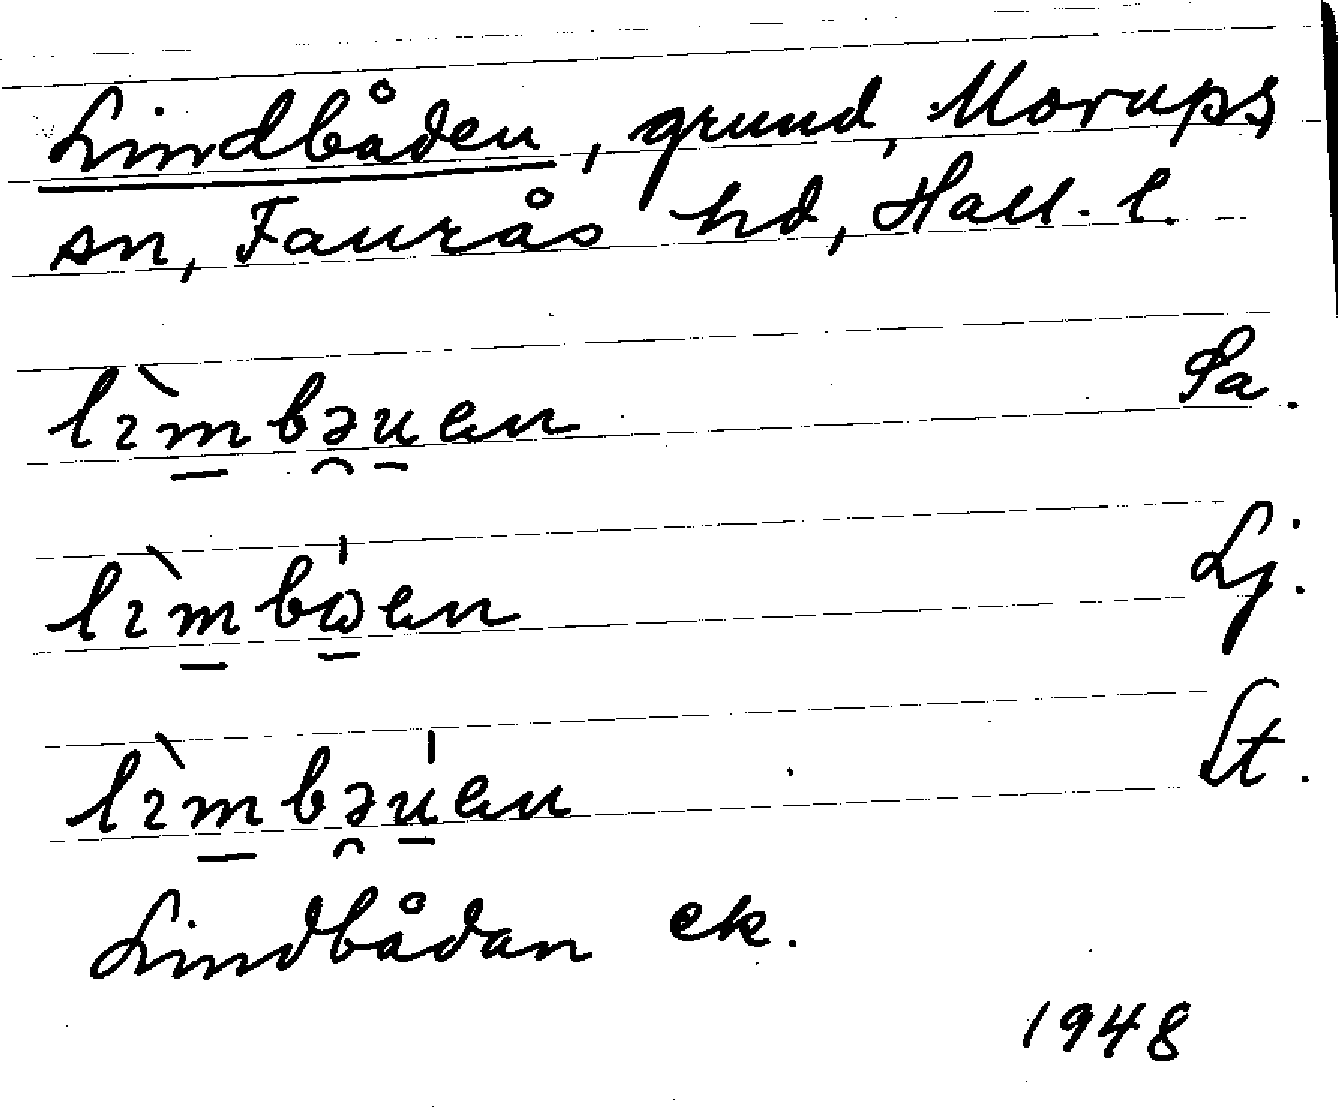 Lindbåden, grund, Morups
sn, Faurås hd, Hall. l.
lìmbəuen Sa.
lìmbɷen Lj.
lìmbəuen St.
Lindbådan ek.
1948